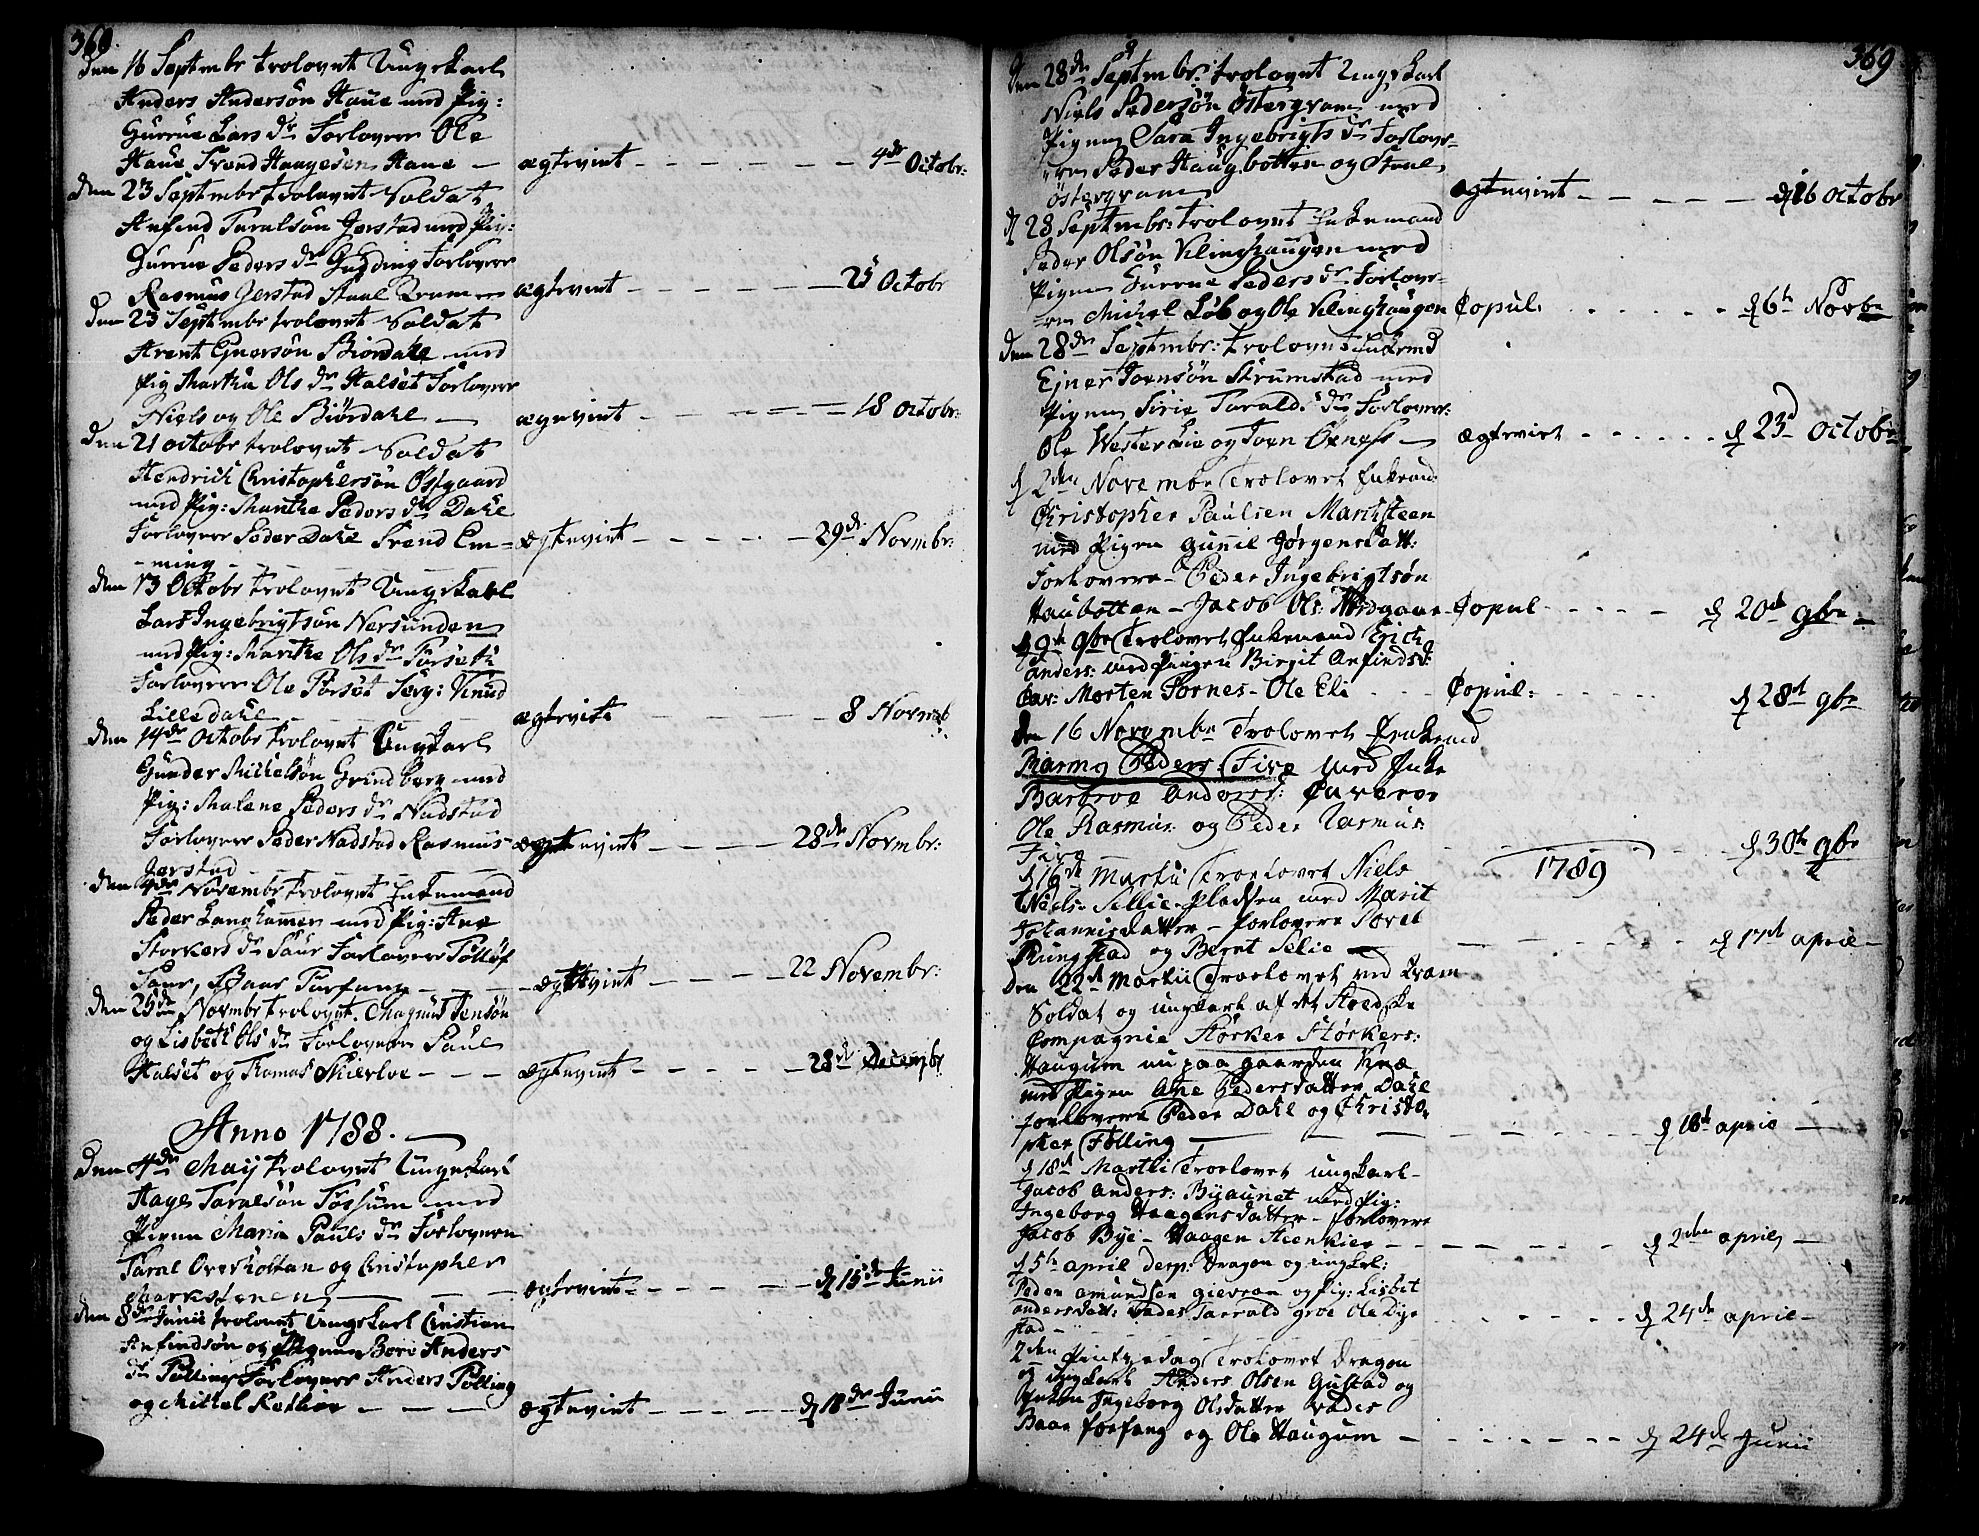 368.
den 16 Septembr trolovet Ungekarl
Anders Andersøn Haue med Pig:
Gurrue Lars dr Forlovere Ole
Haue Trend Haagesen Haue — ægtevint — — — — 4de Octobr:
den 23 Septembr trolovet Soldat
Anfend Taralsøn Jerstad med Pig:
Gurrue Peders dr Gulding Forlovere
Rasmus Jerstad Paal ægtevint — — — 25 Octobr
den 23 Septembr trolovet Soldat
Arent Ejnersøn Biordahl med
Pig Martha Ols dr Halset Forlovere
Niels og Ole Biørdahl — ægevint — — — 18 Octobr:
den 21 octobr trolovet Soldat
Hendrich Christophersøn Østgaard
med Pig: Marithe Peders dr Dahl
Forlovere Peder Dahl Trend Em= ægtevint — — — 29de Novmbr:
=ming — — —
den 13 Octobr trolovet Ungekarl
Lars Ingebrigtsøn Nersunden
med Pig: Marithe Ols dr Forseth
Forlovere Ole Forset Serg: Knud
Lilledahl — — — ægtevint — — — 8 Novmb
den 14de Octobr trolovet Ungkarl
Gunder Michelsøn Grindberg med
Pig: Malene Peders dr Nadstad
Forlovere Peder Nadstad Rasmus ægtevint — — — 28de Novmbr:
Jerstad — — —
den 4de Novembr trolovet Enkemand
Peder Langhamer med Pig: Ane
Storkers dr Saur Forlovere Tolløf
Saur, Baar Furfang — — — ægttvint — — — 22 Novembr:
den 25de Novmbr trolovet. Magnus Jensøn
og Lisbeth Ols dr Forlovere Paul
Halset og Thomas Skierloe — — — ægtevint — — — 28de Decembr
Anno 1788. —
den 4de Maij trolovet Ungekarl
Hage Taralsøn Fossum med
Pigen Maria Pauls dr Forlovern
Taral Overholtan og Christopher
Markstenen — — — ægtevint — — — d 15de Junii
den 8de Junii trolovet Ungekarl Christian
Anfindsøn og Pigen Bori Anders
dr Følling Forlovere Anders Følling
og Mikkel — — — ægtevint — — — d 18de Junii
369
den 28de Septmbr: trolovet Ungekarl
Niels Pedersøn Østergram med
Pigen Sara Ingebrigts dr Forlove=
=re Peder Haugbotten og Paul
Østergram ægtevint — — — d 16 Octobr
d 28 Septmbr: trolovet Enkemand
Peder Olsøn Klinghaugen med
Pigen Gurrue Peders dr Forlove=
=re Michel Løb og Ole Klinghaugen Copul. . . . . d 6te Novbr
den 28de Septmbr: trolovet Enkemd
Ejner Joensøn Strumstad med
Pigen Sirie Tarald. dr Forlover:
Ole Westerlie og Joen Øxness — ægtevint . . . . d 23d Octobr
d 2den Novembr Trolovet Enkemd:
Christopher Paulsen Marchsteen
med Pigen Gunnil Jørgensdatt:
Forlovere — Peder Ingebrigtsøn
Haubotten — Jacob Ols: Nordgaar Copul — — — d 20de 9br —
d 9de 9br Trolovet Enkemand Erich
Anders: med Pigen Birgit Anfindsd:
Cav: Morten Fornes — Ole Eli . . . Copul: . . . . d 28d 9br
den 16 Novembr Trolovet Enkemd
Rasmus Peders: Five med Enke
Barbroe Anders: Cavere
Ole Rasmus: og Peder Rasmus:
Five — — — d 30te 9br
1789
d 16de Martii Troelovet Niels
Niels: Sellie-Pladsen med Marit
Johannisdatter — forlovere Sorel
Rungstad og Bernt Selie — — — — d 17de april —
den 22de Martii Troelovet ved
Soldat og ungkarl af det
Compagnie Størker Størkers:
Haugum nu paa gaarden
med Pigen Ane Pedersdatter Dahl
forlovere Peder Dahl og Christo-
pher Følling — — — d 18de april —
d 18d Martii Troelovet ungkarl-
Jacob Anders: Byaunet med Pig:
Ingeborg Haagensdatter — forlovere
Jacob Bye — Haagen Steenkier — — — d 2den april —
d 5te april desp: Dragon og ungkrl:
Peder Amundsen Gievran og Pig: Lisbet
Andersdatt: Vades Tarrald Groe Ole
stad — — — d 24de april —
2den Pintzedag Trolovet Dragon
og ungkarl Anders Olsen Gustad og
Ingeborg Olsdatter Vades
Baar Forfang og Ole Haugum — — — d 24de Junii